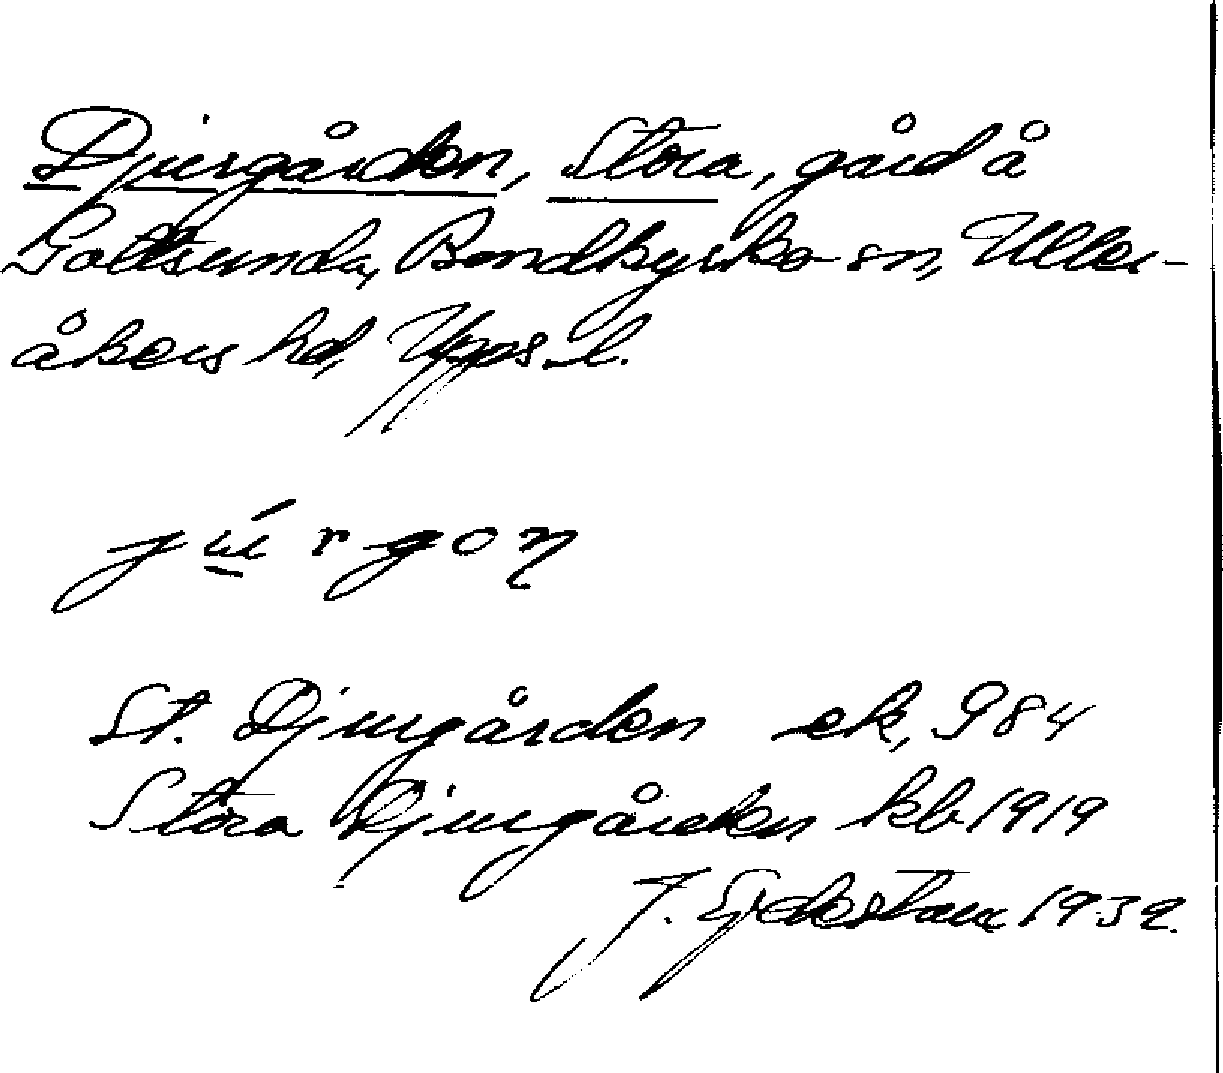 Djurgården, Stora, gård å
Gottsunda, Bondkyrko sn, Uller-
åkers hd, Upps. l.
St. Djurgården ek, 984
Stora Djurgården kb 1919
J. 1939.